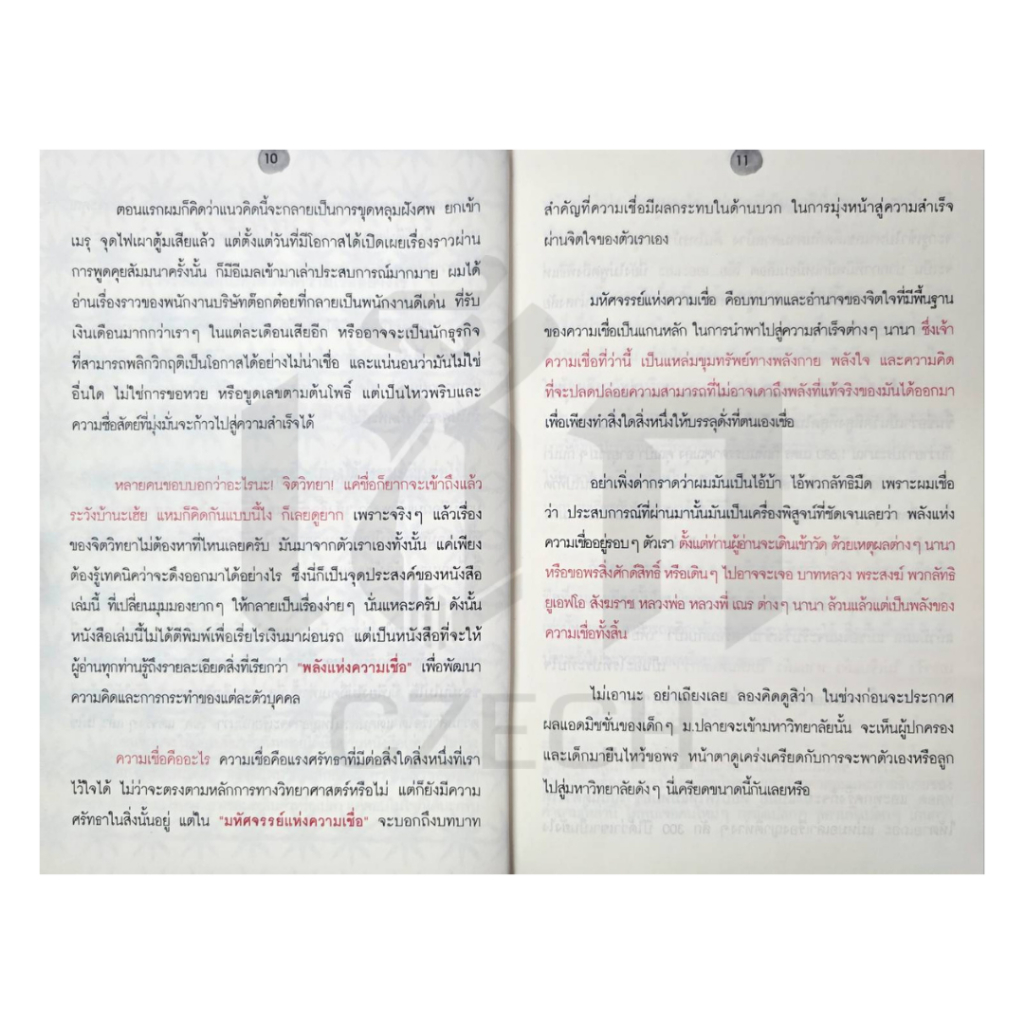 10
ตอนแรกผมก็คิดว่าแนวคิดนี้จะกลายเป็นการขุดหลุมฝังศพ ยกเข้า
เมรุ จุดไฟเผาตู้มเสียแล้ว แต่ตั้งแต่วันที่มีโอกาสได้เปิดเผยเรื่องราวผ่าน
การพูดคุยสัมมนาครั้งนั้น ก็มีอีเมลเข้ามาเล่าประสบการณ์มากมาย ผมได้
อ่านเรื่องราวของพนักงานบริษัทต๊อกต๋อยที่กลายเป็นพนักงานดีเด่น ที่รับ
เงินเดือนมากกว่าเราๆ ในแต่ละเดือนเสียอีก หรืออาจจะเป็นนักธุรกิจ
ที่สามารถพลิกวิกฤติเป็นโอกาสได้อย่างไม่น่าเชื่อ และแน่นอนว่ามันไม่ใช่
อื่นใด ไม่ใช่การขอหวย หรือขูดเลขตามต้นโพธิ์ แต่เป็นไหวพริบและ
ความซื่อสัตย์ที่มุ่งมั่นจะก้าวไปสู่ความสำเร็จได้
หลายคนชอบบอกว่าอะไรนะ! จิตวิทยา! แค่ชื่อก็ยากจะเข้าถึงแล้ว
ระวังบ้านะเฮ้ย แหมก็คิดกันแบบนี้ไง ก็เลยดูยาก เพราะจริงๆ แล้วเรื่อง
ของจิตวิทยาไม่ต้องหาที่ไหนเลยครับ มันมาจากตัวเราเองทั้งนั้น แค่เพียง
ต้องรู้เทคนิคว่าจะดึงออกมาได้อย่างไร ซึ่งนี่ก็เป็นจุดประสงค์ของหนังสือ
เล่มนี้ ที่เปลี่ยนมุมมองยากๆ ให้กลายเป็นเรื่องง่ายๆ นั่นแหละครับ ดังนั้น
หนังสือเล่มนี้ไม่ได้ตีพิมพ์เพื่อเรี่ยไรเงินมาผ่อนรถ แต่เป็นหนังสือที่จะให้
ผู้อ่านทุกท่านรู้ถึงรายละเอียดสิ่งที่เรียกว่า "พลังแห่งความเชื่อ" เพื่อพัฒนา
ความคิดและการกระทำของแต่ละตัวบุคคล
ความเชื่อคืออะไร ความเชื่อคือแรงศรัทธาที่มีต่อสิ่งใดสิ่งหนึ่งที่เรา
ไว้ใจได้ ไม่ว่าจะตรงตามหลักการทางวิทยาศาสตร์หรือไม่ แต่ก็ยังมีความ
ศรัทธาในสิ่งนั้นอยู่ แต่ใน "มหัศจรรย์แห่งความเชื่อ" จะบอกถึงบทบาท
11
สำคัญที่ความเชื่อมีผลกระทบในด้านบวก ในการมุ่งหน้าสู่ความสำเร็จ
ผ่านจิตใจของตัวเราเอง
มหัศจรรย์แห่งความเชื่อ คือบทบาทและอำนาจของจิตใจที่มีพื้นฐาน
ของความเชื่อเป็นแกนหลัก ในการนำพาไปสู่ความสำเร็จต่างๆ นานา ซึ่งเจ้า
ความเชื่อที่ว่านี้ เป็นแหล่งขุมทรัพย์ทางพลังกาย พลังใจ และความคิด
ที่จะปลดปล่อยความสามารถที่ไม่อาจเดาถึงพลังที่แท้จริงของมันได้ออกมา
เพื่อเพียงทำสิ่งใดสิ่งหนึ่งให้บรรลุดั่งที่ตนเองเชื่อ
อย่าเพิ่งด่ากราดว่าผมมันเป็นไอ้บ้า ไอ้พวกลัทธิมืด เพราะผมเชื่อ
ว่า ประสบการณ์ที่ผ่านมานั้นมันเป็นเครื่องพิสูจน์ที่ชัดเจนเลยว่า พลังแห่ง
ความเชื่ออยู่รอบๆ ตัวเรา ตั้งแต่ท่านผู้อ่านจะเดินเข้าวัด ด้วยเหตุผลต่างๆ นานา
หรือขอพรสิ่งศักดิ์สิทธิ์ หรือเดินๆ ไปอาจจะเจอ บาทหลวง พระสงฆ์ พวกลัทธิ
ยูเอฟโอ สังฆราช หลวงพ่อ หลวงพี่ เณร ต่างๆ นานา ล้วนแล้วแต่เป็นพลังของ
ความเชื่อทั้งสิ้น
ไม่เอานะ อย่าเถียงเลย ลองคิดดูสิว่า ในช่วงก่อนจะประกาศ
ผลแอดมิชชั่นของเด็กๆ ม.ปลายจะเข้ามหาวิทยาลัยนั้น จะเห็นผู้ปกครอง
และเด็กมายืนไหว้ขอพร หน้าตาดูเคร่งเครียดกับการจะพาตัวเองหรือลูก
ไปสู่มหาวิทยาลัยดังๆ นี่เครียดขนาดนี้กันเลยหรือ
CZECH